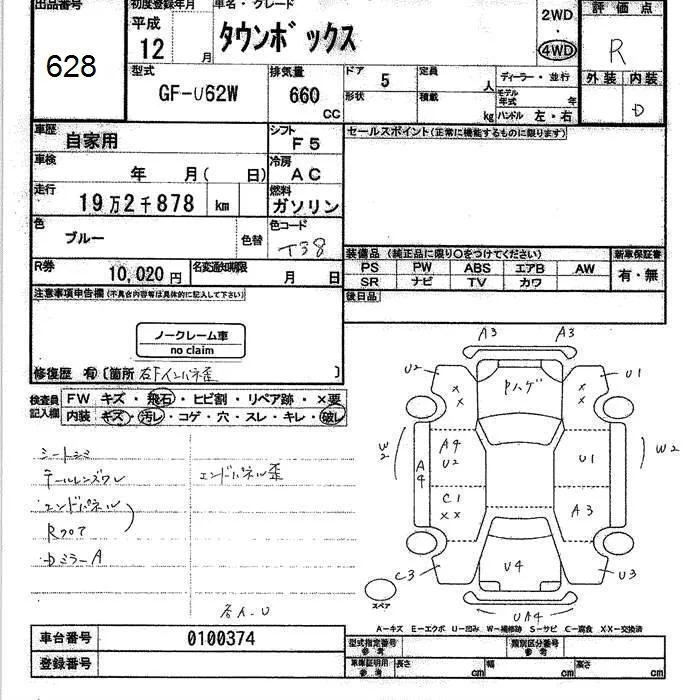 出品番号
628
初度登録年月
平成
12 月
車名・グレード
タウンボックス
2WD
・
4WD
評価点
R
外装 内装
D
型式
GF-U62W
排気量
660
CC
ドア
5
形状
定員
人
積載
kg
ディーラー・並行
モデル年式 年
ハンドル 左・右
車歴
自家用
シフト
F5
車検
年 月( 日)
冷房
AC
走行
19万2千878 km
燃料
ガソリン
色
ブルー
色替
色コード
T38
R券
10,020円
名変通知期限
月 日
セールスポイント(正常に機能するものに限ります)
装備品(純正品に限り○をつけてください)
PS PW ABS エアB AW
SR ナビ TV カワ
新車保証書
有・無
後日品
注意事項申告欄(不具合内容等は具体的に記入して下さい)
ノークレーム車
no claim
修復歴 有(箇所 右Fインパネ歪 )
検査員記入欄
FW キズ・飛石・ヒビ割・リペア跡・×要
内装 キズ・汚レ・コゲ・穴・スレ・キレ・破レ
シートシミ
テールレンズワレ
エンドパネル
Rフロア
Dミラー A
エンドパネル歪
A3 A3
U2 U1
XX XX
Pハゲ
W2 W2
A4
A4
U2
U1
C1
XX
A3
C3 U4 U3
スペア
UA4
A-キズ E-エクボ U-凹み W-補修跡 S-サビ C-腐食 XX-交換済
車台番号
0100374
登録番号
型式指定番号
参考
類別区分番号
参考
車庫証明用
参考
長さ cm 幅 cm 高さ cm